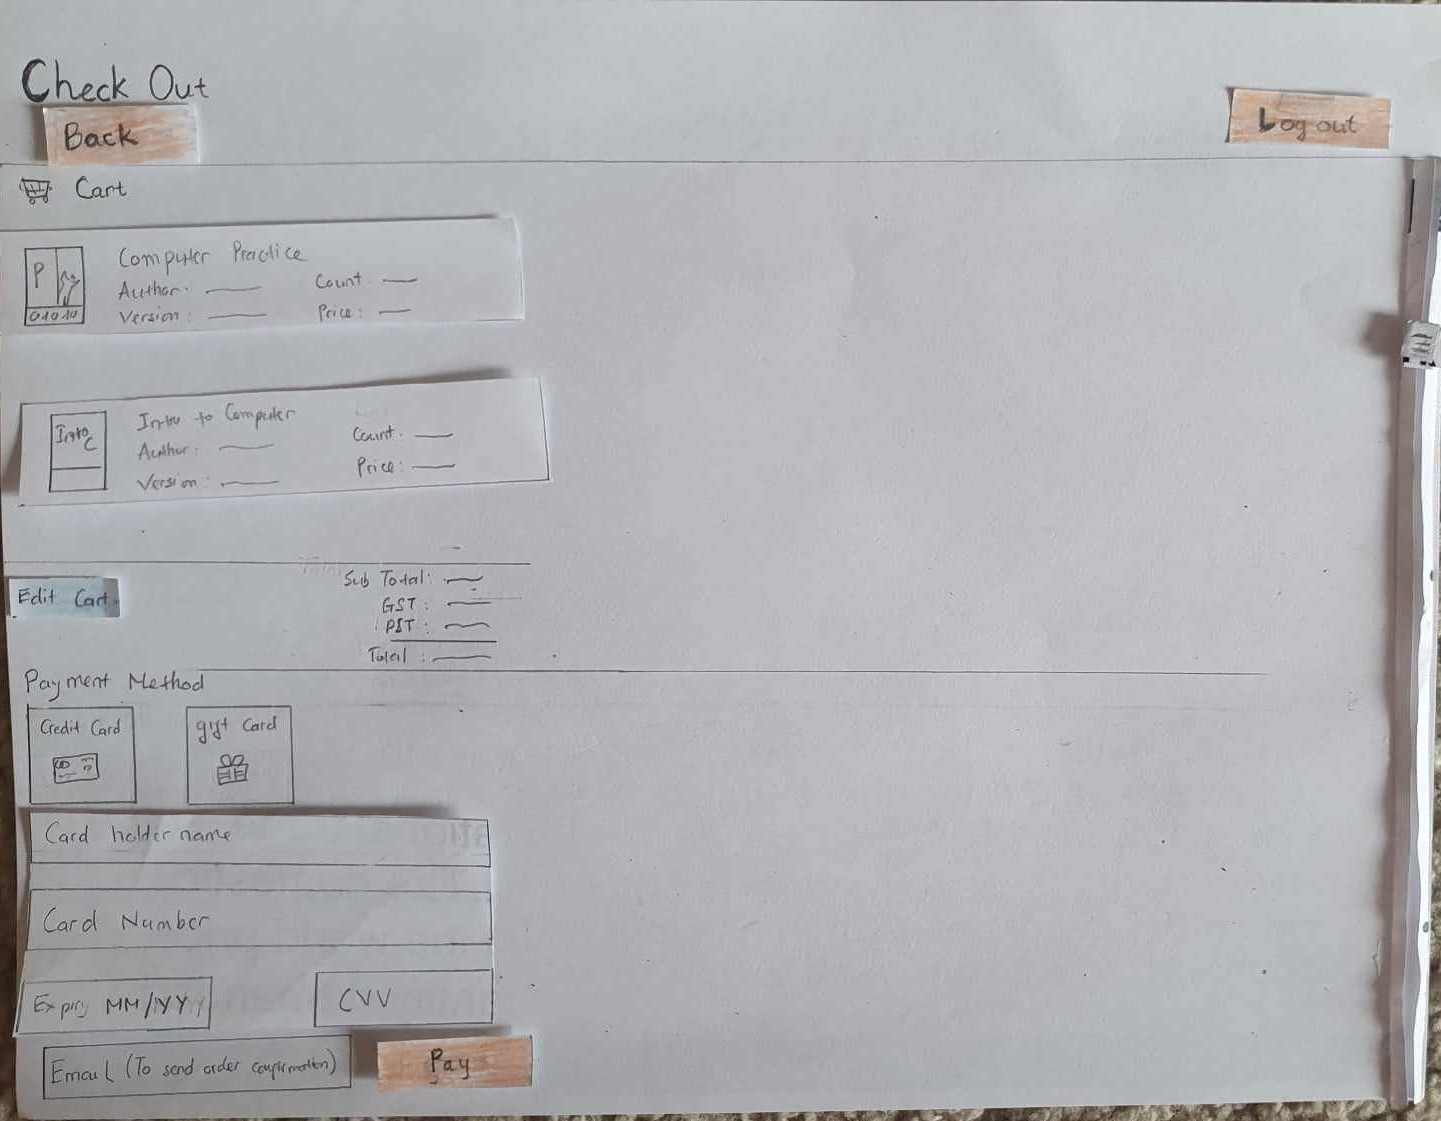 Check Out
Back
Log out
Cart
P
01010
Computer Practice
Author:
Version:
Count:
Price:
Intro C
Intro to Computer
Author:
Version:
Count:
Price:
Edit Cart
Sub Total:
GST:
PST:
Total:
Payment Method
Credit Card
gift Card
Card holder name
Card Number
Expiry MM/YY
CVV
Email (To send order confirmation)
Pay